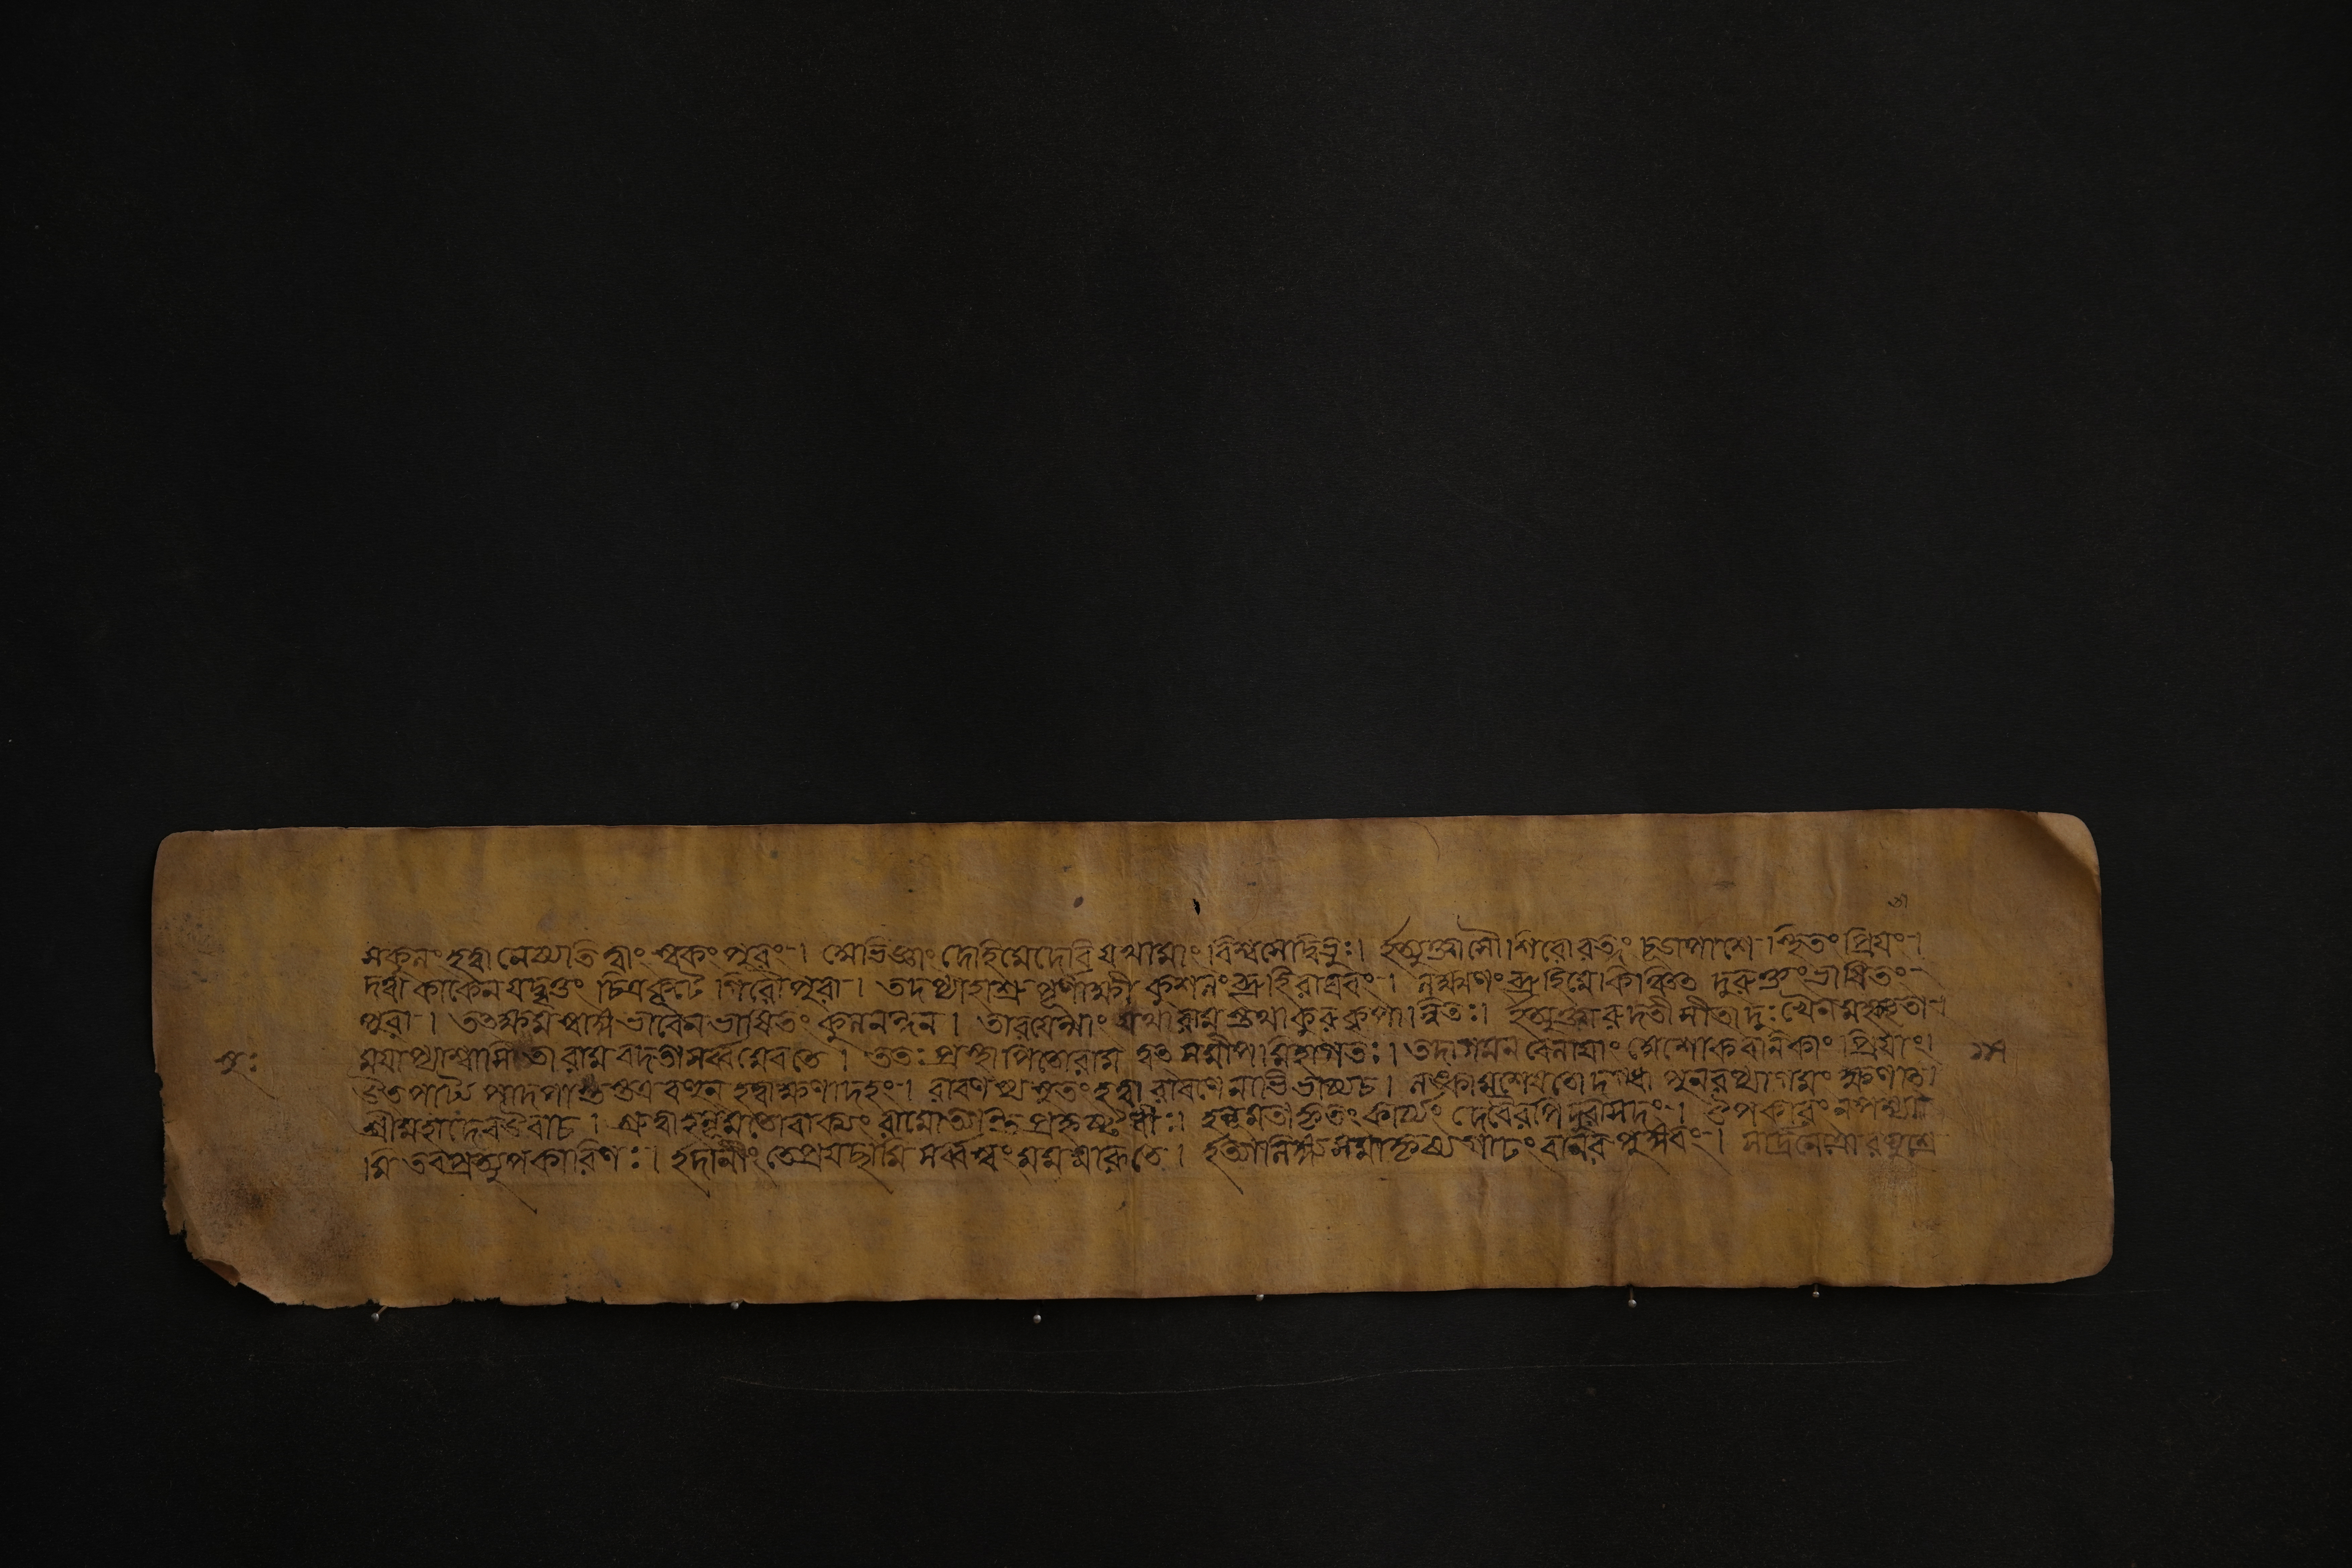 সকুলং হত্বা নেষ্যতি ত্বাং স্বকং পুরং । মেভিজ্ঞাং দেহি মে দেবি যথা মাং বিশ্বসেদ্বিভুঃ । ইত্যুক্তাসৌ শিরোরত্নং চূড়াপাশে স্থিতং প্রিয়ং ।
দত্বা কাকেন যদ্বৃত্তং চিত্রকূটে গিরৌ পুরা । তদপ্যাহাশ্রুপূর্ণাক্ষী কুশলং ব্রূহি রাঘবং । লক্ষ্মণং ব্রূহি মে কিঞ্চিৎ দুরুক্তং ভাষিতং
পুরা । তৎক্ষমস্বাজ্ঞভাবেন ভাষিতং কুলনন্দন । তারয়েন্মাং যথা রাম স্তথা কুরু কৃপান্বিতঃ । ইত্যুক্ত্বা রুদতী সীতা দুঃখেন মহতাবৃতা
সুঃ ময়াপ্যাশ্বাসিতা রাম বদতা সর্ব্বমেব তে । ততঃ প্রস্থাপিতো রাম ত্বৎসমীপমিহাগতঃ । তদাগমন বেলায়াং মশোকবনিকাং প্রিয়াং ।
উৎপাট্য পাদপাংস্তত্র বহুন হত্বা ক্ষণাদহং । রাবণস্য সুতং হত্বা রাবণেনাভিভাষ্য চ । লঙ্কামশেষতো দগ্ধা পুনরপ্যাগমং ক্ষণাৎ ।
শ্রীমহাদেব উবাচ । শ্রুত্বা হনুমতো বাক্যং রামোত্যন্ত প্রহৃষ্টধীঃ । হনুমতা কৃতং কার্য্যং দেবৈরপি দুরাসদং । উপকারং ন পশ্যা
মি তব প্রত্যুপকারিণঃ । ইদানীং তে প্রযছামি সর্ব্বস্বং মম মারুতে । ইত্যালিঙ্গ্য সমাকৃষ্য গাঢং বানর পুঙ্গবং । সার্দ্রনেত্রো রঘুশ্রে